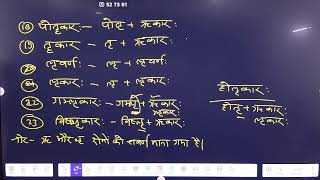 52 73 61
(18) पोतॄकारः — पोतृ + ऋकारः
(19) तृकारः — तृ + ऋकारः
लृवर्णः — लृ + लृवर्णः
लृकारः — लृ + लृकारः
22 गमॢकारः — गमॢ + ऋकारः
23 — + ऋकारः
नोट:- ऋ और लृ दोनों को सवर्ण माना गया है।
होतृकारः
होतृ + ऋकारः
लृकारः